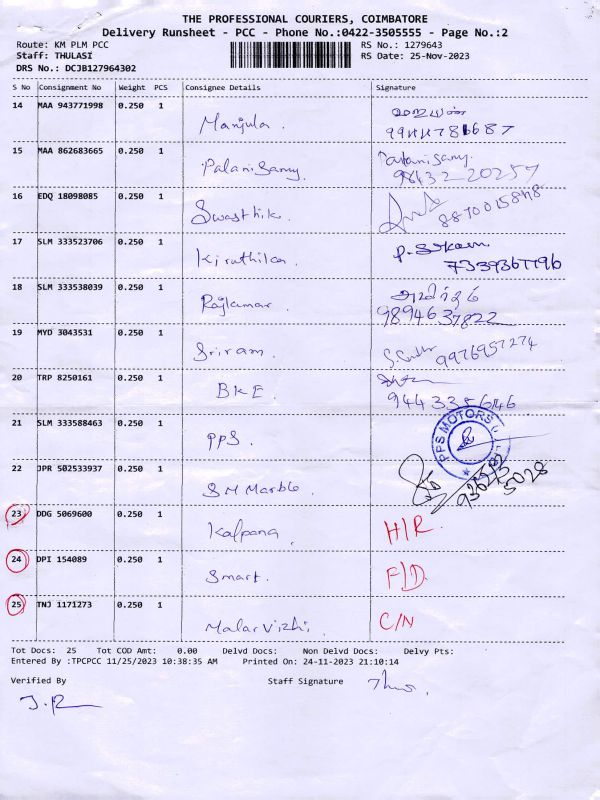 THE PROFESSIONAL COURIERS, COIMBATORE
Delivery Runsheet - PCC - Phone No.:0422-3505555 - Page No.:2
Route: KM PLM PCC RS No.: 1279643
Staff: THULASI RS Date: 25-Nov-2023
DRS No.: DCJB127964302
S No Consignment No Weight PCS Consignee Details Signature
14 MAA 943771998 0.250 1
Manjula.
15 MAA 862683665 0.250 1 Palanisamy.
Palanisamy. 98432 20257
16 EDQ 18098085 0.250 1
Swasthik. 8870015848
17 SLM 333523706 0.250 1
Kiruthika.
18 SLM 333538039 0.250 1
Rajkumar. 9894637822
19 MYD 3043531 0.250 1
Sriram. 9976957274
20 TRP 8250161 0.250 1
BKE.
21 SLM 333588463 0.250 1 PPS MOTORS
PPS.
22 JPR 502533937 0.250 1
SM Marble.
23 DDG 5069600 0.250 1
Kalpana. H/R.
24 DPI 154089 0.250 1
Smart. F/D.
25 TNJ 1171273 0.250 1
Malarvizhi. C/N
Tot Docs: 25 Tot COD Amt: 0.00 Delvd Docs: Non Delvd Docs: Delvy Pts:
Entered By :TPCPCC 11/25/2023 10:38:35 AM Printed On: 24-11-2023 21:10:14
Verified By Staff Signature